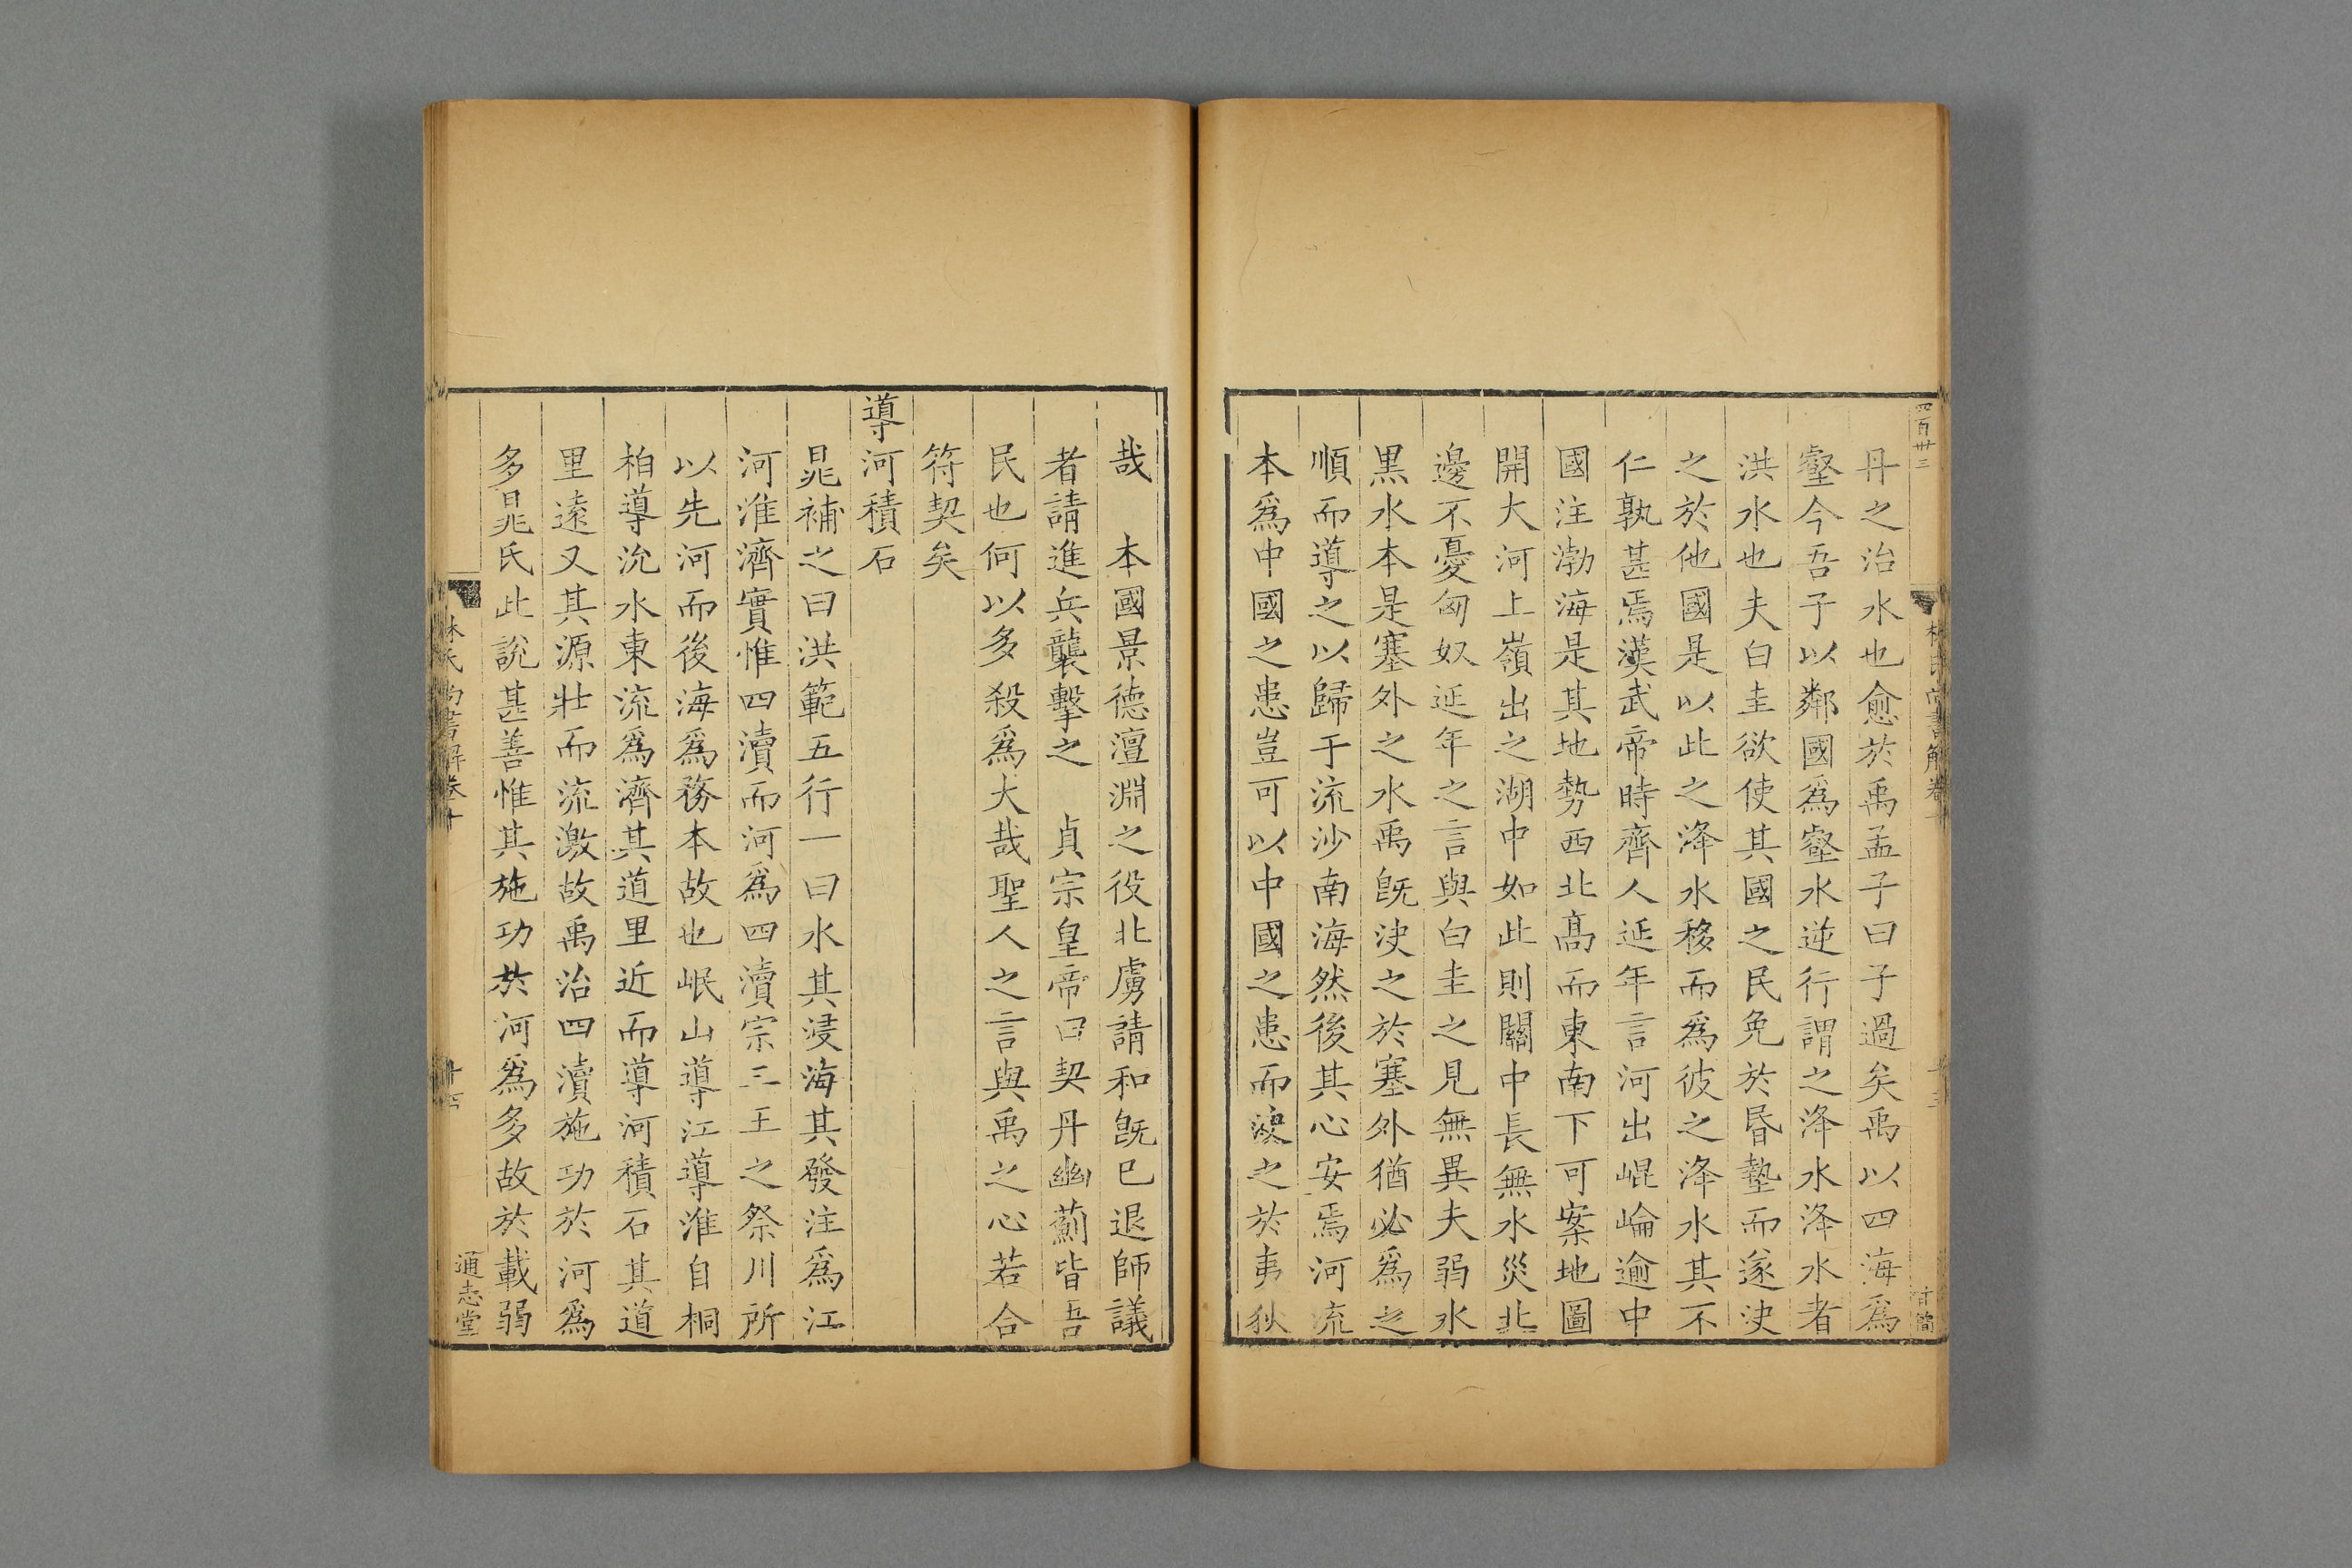 四百卅三
丹之治水也愈於禹孟子曰子過矣禹以四海爲
壑今吾子以鄰國爲壑水逆行謂之洚水洚水者
洪水也夫白圭欲使其國之民免於昏墊而遂決
之於他國是以此之洚水移而爲彼之洚水其不
仁孰甚焉漢武帝時齊人延年言河出崐崘逾中
國注渤海是其地勢西北髙而東南下可案地圖
開大河上嶺出之湖中如此則關中長無水災北
邊不憂匈奴延年之言與白圭之見無異夫弱水
黑水本是塞外之水禹旣決之於塞外猶必爲之
順而導之以歸于流沙南海然後其心安焉河流
本爲中國之患豈可以中國之患而移之於夷狄
哉　本國景德澶淵之役北虜請和旣已退師議
者請進兵襲擊之　貞宗皇帝曰契丹幽薊皆吾
民也何以多殺爲大哉聖人之言與禹之心若合
符契矣
導河積石
晁補之曰洪範五行一曰水其浸海其發注爲江
河淮濟實惟四瀆而河爲四瀆宗三王之祭川所
以先河而後海爲務本故也岷山導江導淮自桐
柏導沇水東流爲濟其道里近而導河積石其道
里遠又其源壯而流激故禹治四瀆施功於河爲
多晁氏此說甚善惟其施功於河爲多故於載弱
林氏尚書解卷十
通志堂